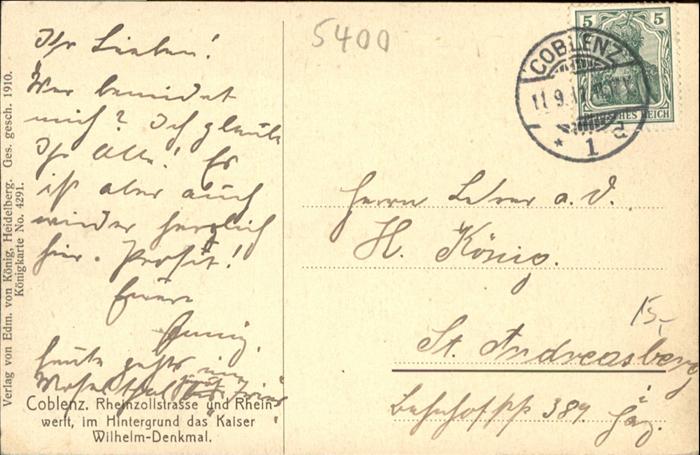 Ihr Lieben!
Wer beneidet
mich? Ich glaube
Ihr Alle! Es
ist aber auch
wieder herrlich
hier. Prosit!
Euer
heute gehts
Moseltal
Coblenz. Rheinzollstrasse und Rhein-
werft, im Hintergrund das Kaiser
Wilhelm-Denkmal.
Verlag von Edm. von König, Heidelberg. Ges. gesch. 1910.
Königkarte No. 4291.
5400
5 5
COBLENZ
11.9.11
* 1 a
CHES REICH
Herrn Lehrer a. D.
H. König.
15,-
St. Andreasberg
389 i/Harz.